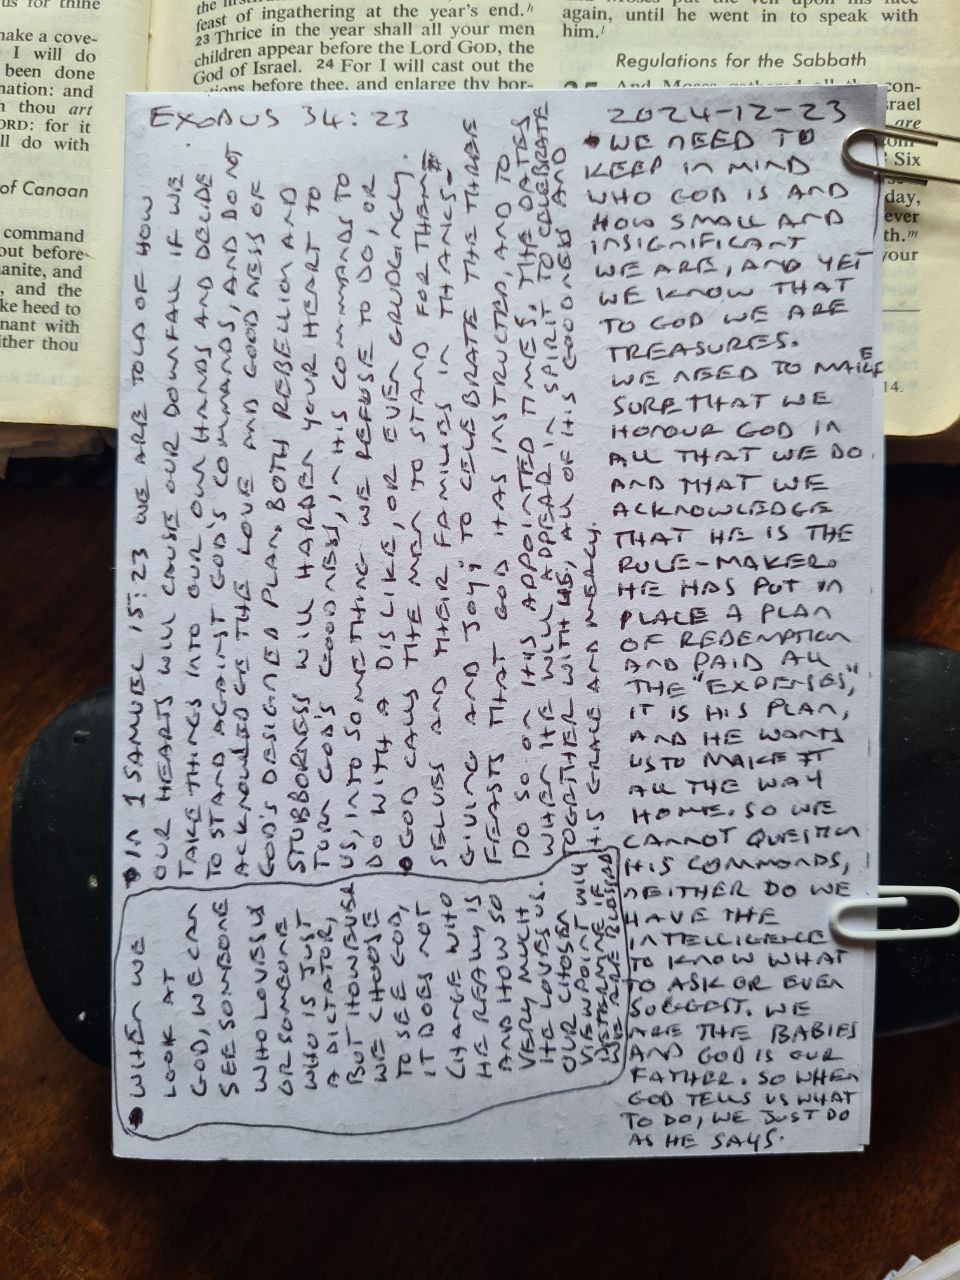 us for thine
make a cove-
I will do
been done
nation: and
h thou art
ORD: for it
ll do with
of Canaan
command
out before
anite, and
, and the
ke heed to
nant with
ither thou
feast of ingathering at the year's end.h
23 Thrice in the year shall all your men
children appear before the Lord GOD, the
God of Israel. 24 For I will cast out the
before thee, and enlarge thy bor-
again, until he went in to speak with
him.l
Regulations for the Sabbath
EXODUS 34:23
2024-12-23
• WE NEED TO
KEEP IN MIND
WHO GOD IS AND
HOW SMALL AND
INSIGNIFICANT
WE ARE, AND YET
WE KNOW THAT
TO GOD WE ARE
TREASURES.
WE NEED TO MAKE
SURE THAT WE
HONOUR GOD IN
ALL THAT WE DO
AND THAT WE
ACKNOWLEDGE
THAT HE IS THE
RULE-MAKER.
HE HAS PUT IN
PLACE A PLAN
OF REDEMPTION
AND PAID ALL
THE "EXPENSES",
IT IS HIS PLAN,
AND HE WANTS
US TO MAKE IT
ALL THE WAY
HOME. SO WE
CANNOT QUESTION
HIS COMMANDS,
NEITHER DO WE
HAVE THE
INTELLIGENCE
TO KNOW WHAT
TO ASK OR EVEN
SUGGEST. WE
ARE THE BABIES
AND GOD IS OUR
FATHER. SO WHEN
GOD TELLS US WHAT
TO DO, WE JUST DO
AS HE SAYS.
• IN 1 SAMUEL 15:23 WE ARE TOLD OF HOW
OUR HEARTS WILL CAUSE OUR DOWNFALL IF WE
TAKE THINGS INTO OUR OWN HANDS AND DECIDE
TO STAND AGAINST GOD'S COMMANDS, AND DO NOT
ACKNOWLEDGE THE LOVE AND GOODNESS OF
GOD'S DESIGNED PLAN. BOTH REBELLION AND
STUBBORNESS WILL HARDEN YOUR HEART TO
TURN GOD'S GOODNESS, IN HIS COMMANDS TO
US, INTO SOMETHING WE REFUSE TO DO, OR
DO WITH A DISLIKE, OR EVEN GRUDGINGLY.
• GOD CALLS THE MEN TO STAND FOR THEM-
SELVES AND THEIR FAMILIES IN THANKS-
GIVING AND JOY; TO CELEBRATE THE THREE
FEASTS THAT GOD HAS INSTRUCTED, AND TO
DO SO ON HIS APPOINTED TIMES, THE DATES
WHEN HE WILL APPEAR IN SPIRIT TO CELEBRATE
TOGERTHER WITH US, ALL OF HIS GOODNESS AND
HIS GRACE AND MERCY.
• WHEN WE
LOOK AT
GOD, WE CAN
SEE SOMEONE
WHO LOVES US
OR SOMEONE
WHO IS JUST
A DICTATOR,
BUT HOWEVER
WE CHOOSE
TO SEE GOD,
IT DOES NOT
CHANGE WHO
HE REALLY IS
AND HOW SO
VERY MUCH
HE LOVES US.
OUR CHOSEN
VIEWPOINT WILL
DETERMINE IF
WE ARE BLESSED
con-
srael
are
Six
day,
ever
th.m
your
14.